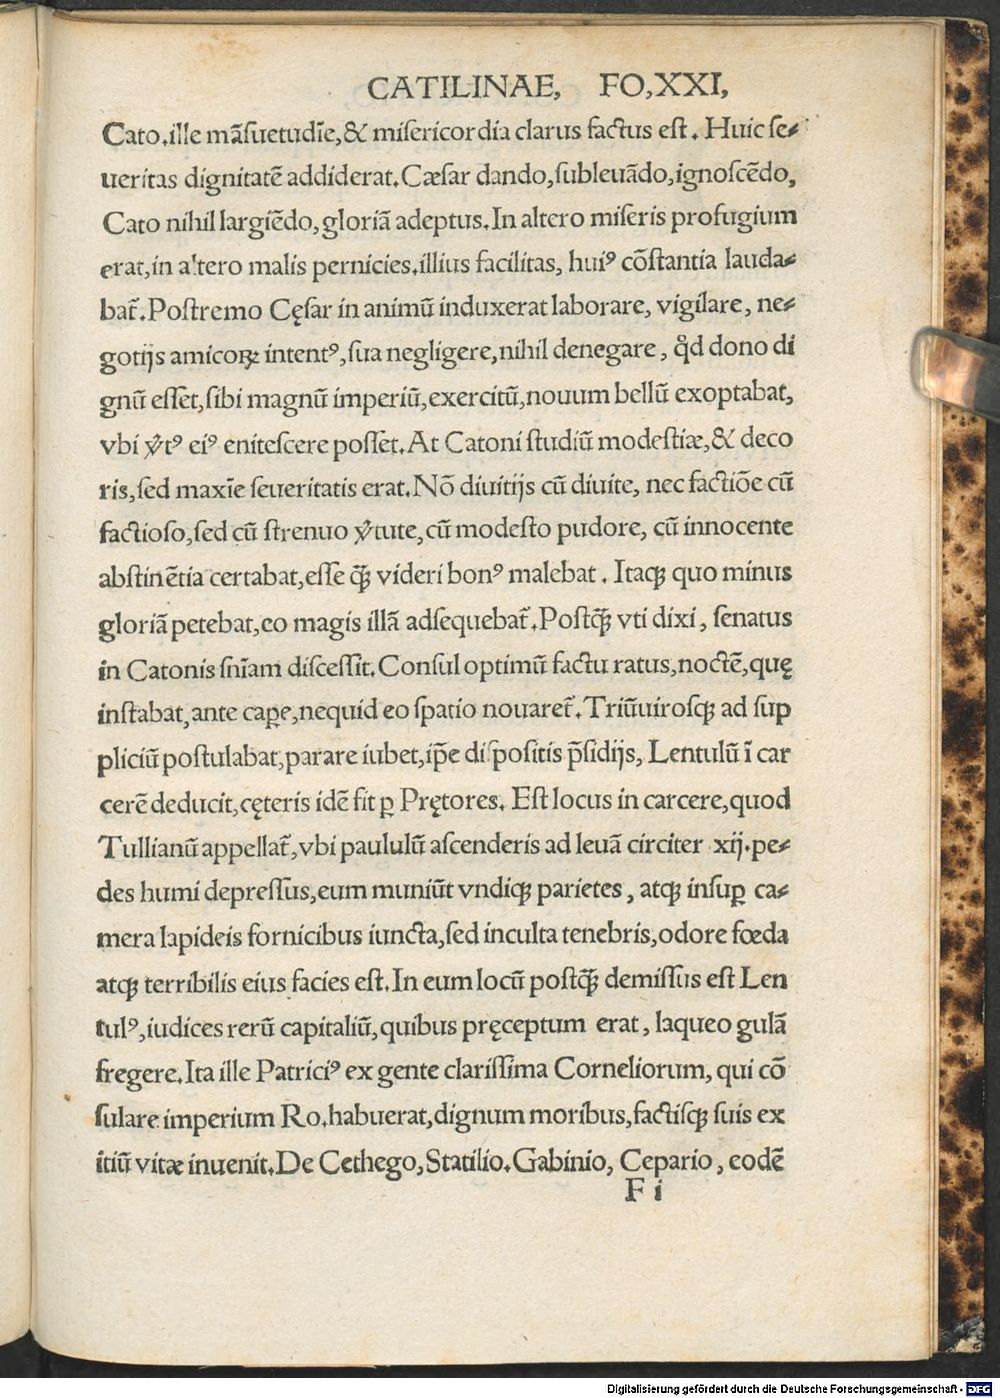 CATILINAE, FO,XXI,
Cato.ille mãſuetudĩe,& miſericordia clarus factus eſt. Huic ſe⸗
ueritas dignitatẽ addiderat.Cæſar dando,ſubleuãdo,ignoſcẽdo,
Cato nihil largiẽdo, gloriã adeptus.In altero miſeris profugium
erat,in altero malis pernicies.illius facilitas, huiꝰ cõſtantia lauda⸗
bat̃.Poſtremo Cęſar in animũ induxerat laborare, vigilare, ne⸗
gotijs amicoꝝ intentꝰ,ſua negligere,nihil denegare, qd̉ dono di
gnũ eſſet,ſibi magnũ imperiũ,exercitũ,nouum bellũ exoptabat,
vbi v̉tꝰ eiꝰ eniteſcere poſſet.At Catoni ſtudiũ modeſtiæ,& deco
ris,ſed maxĩe ſeueritatis erat.Nõ diuitijs cũ diuite, nec factiõe cũ
factioſo,ſed cũ ſtrenuo v̉tute,cũ modeſto pudore, cũ innocente
abſtinẽtia certabat,eſſe q̃ꝫ videri bonꝰ malebat. Itaqꝫ quo minus
gloriã petebat,eo magis illã adſequebat̃.Poſtq̃ꝫ vti dixi, ſenatus
in Catonis ſnĩam diſceſſit.Conſul optimũ factu ratus,noctẽ,quę
inſtabat,ante caꝑe,nequid eo ſpatio nouaret̃.Triũuiroſqꝫ ad ſup
pliciũ poſtulabat,parare iubet,ip̃e diſpoſitis p̃ſidijs, Lentulũ ĩ car
cerẽ deducit,cęteris idẽ fit ꝑ Prętores. Eſt locus in carcere,quod
Tullianũ appellat̃,vbi paululũ aſcenderis ad leuã circiter xij.pe⸗
des humi depreſſus,eum muniũt vndiqꝫ parietes, atqꝫ inſuꝑ ca⸗
mera lapideis fornicibus iuncta,ſed inculta tenebris,odore fœda
atqꝫ terribilis eius facies eſt.In eum locũ poſtq̃ꝫ demiſſus eſt Len
tulꝰ,iudices rerũ capitaliũ,quibus pręceptum erat, laqueo gulã
fregere.Ita ille Patriciꝰ ex gente clariſſima Corneliorum, qui cõ
ſulare imperium Ro.habuerat,dignum moribus,factiſqꝫ ſuis ex
itiũ vitæ inuenit.De Cethego,Statilio.Gabinio, Cepario, eodẽ
F i
Digitalisierung gefördert durch die Deutsche Forschungsgemeinschaft - DFG